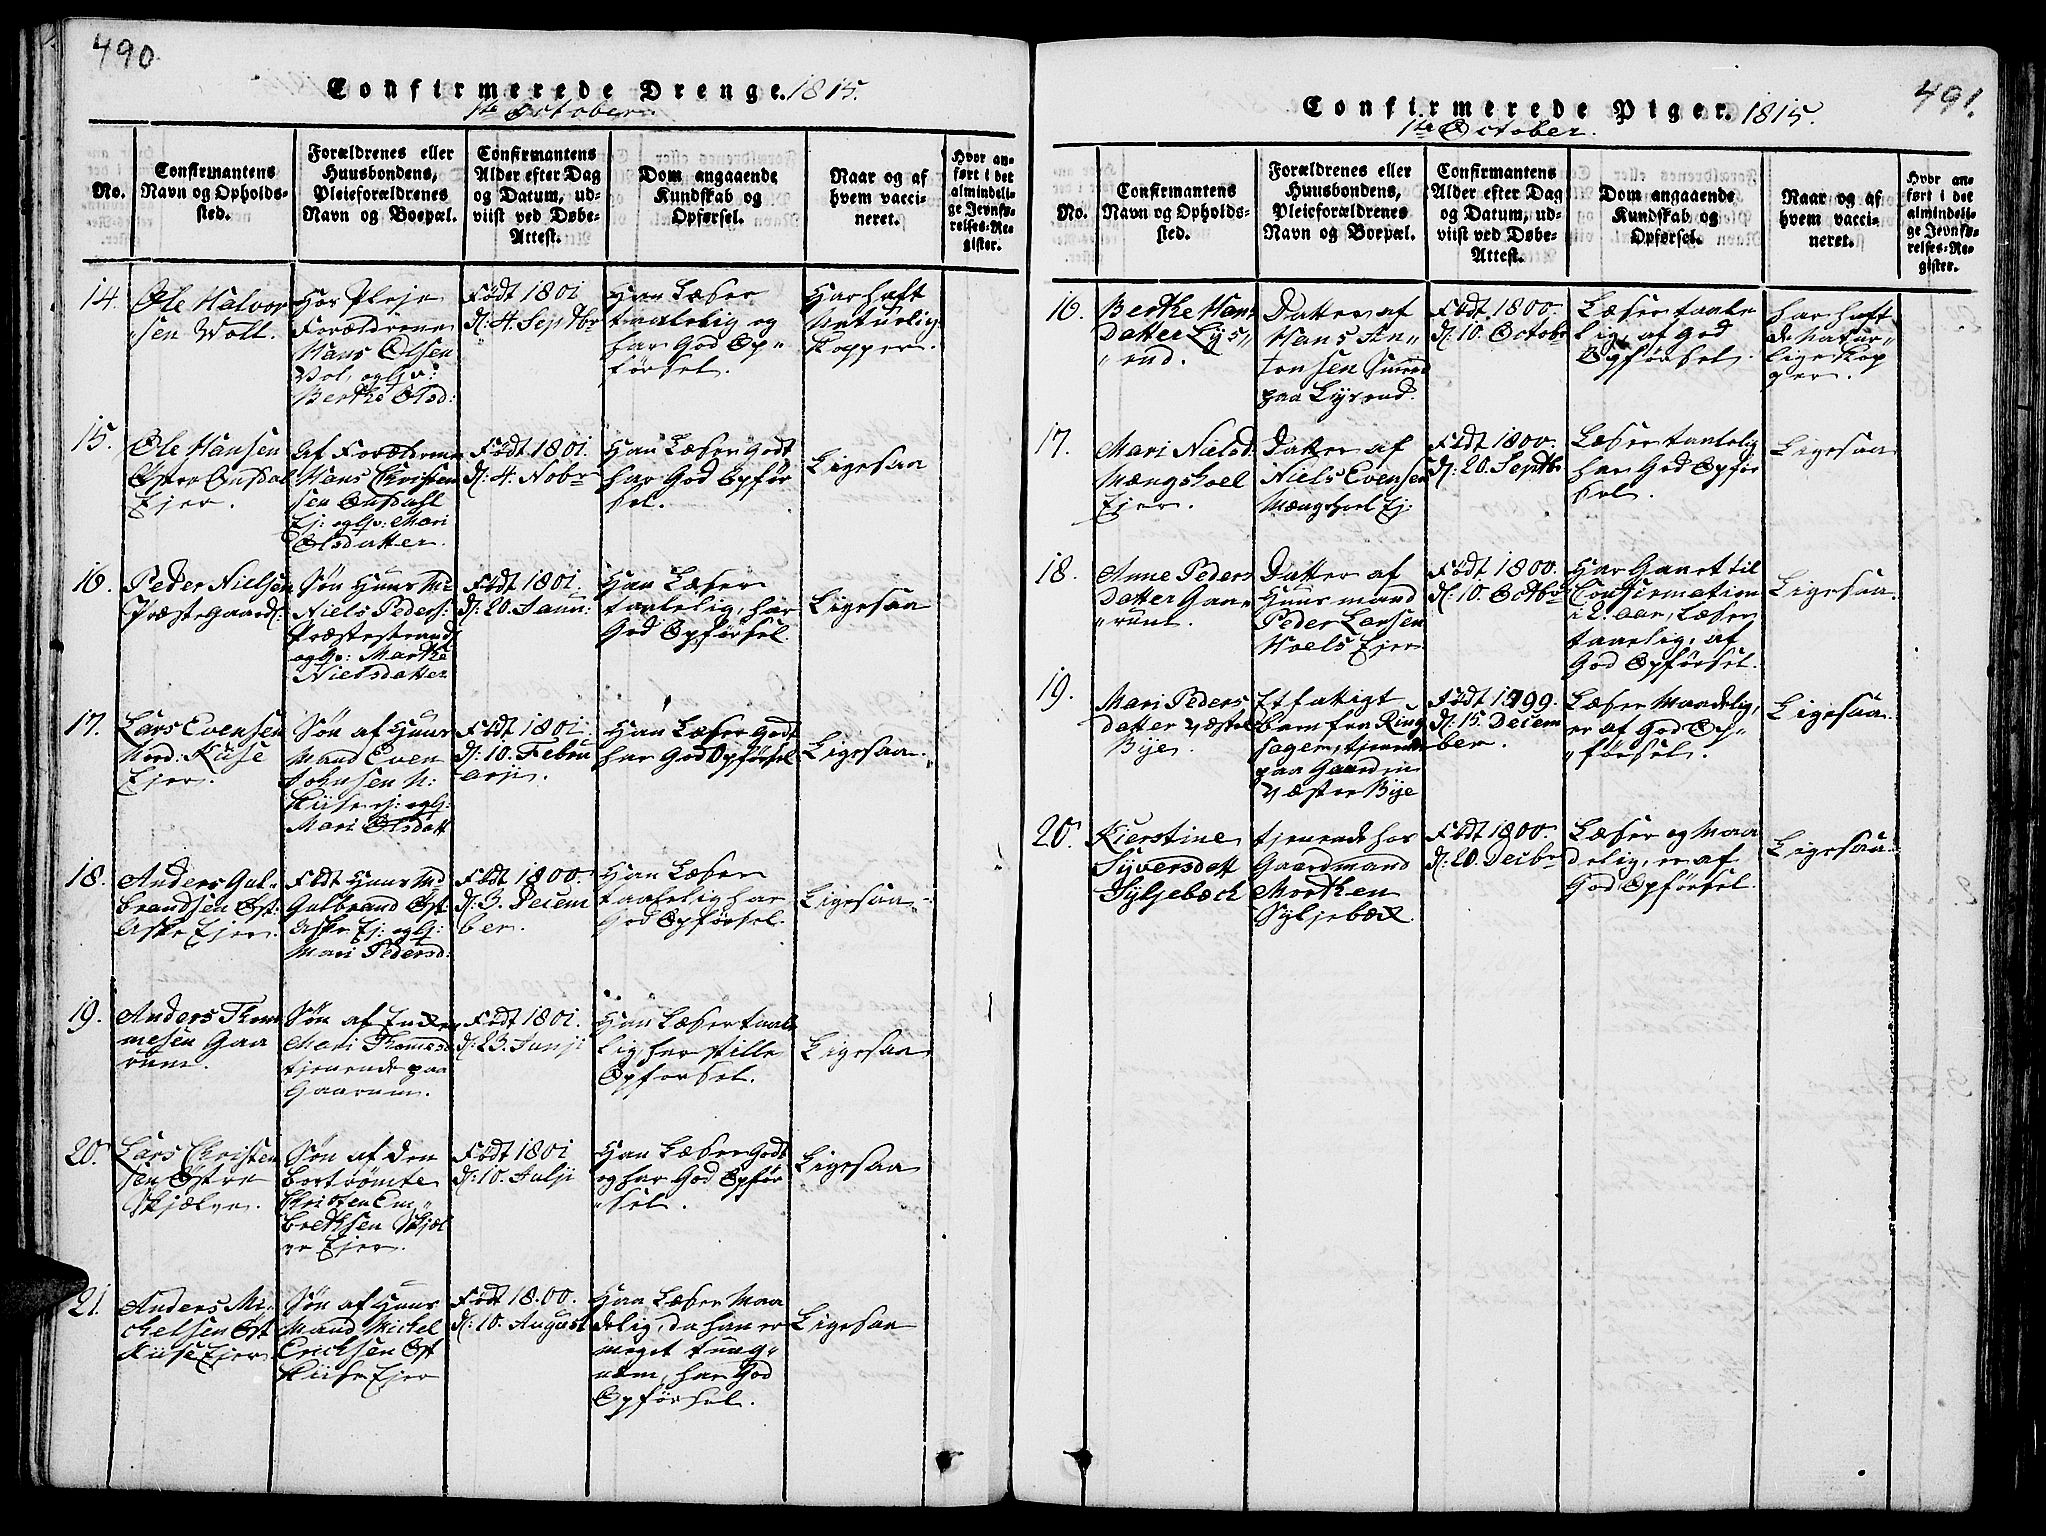 490.
Confirmerede Drenge. 1815.
1te October
No.
Confirmantens
Navn og Opholds-
sted.
Forældrenes eller
Huusbondens,
Pleieforældrenes
Navn og Boepæl.
Confirmantens
Alder efter Dag
og Datum, ud-
viist ved Døbe-
Attest.
Dom angaaende
Kundskab og
Opførsel.
Naar og af
hvem vacci-
neret.
Hvor an-
ført i det
almindeli-
ge Jevnfø-
relses-Re-
gister.
14.
Ole Halvor
sen Woll.
Hos Pleje
Forældrene
Hans Olsen
Vol, og Gv:
Berthe Olsd:
Født 1801
d: 4. Septbr
Han Læser
taalelig og
har God Op„
førsel.
Har haft
Naturlig
Kopper.
15.
Ole Hansen
Østre Onsdal
Ejer.
Af Forældrene
Hans Christen
sen Onsdahl
Ej: og Gv: Mari
Olsdatter.
Født 1801.
d: 4. Nobr
Han Læser Godt
har God Opfør
sel.
Ligesaa
16.
Peder Nielsen
Præstegaards:
Søn Huus Md
Niels Peders:
Præstestrand
og Gv: Marthe
Nielsdatter
Født 1801.
d: 20. Janu:
Han Læser
taalelig, har
God Opførsel.
Ligesaa
17.
Lars Evensen
Nord: Kiise
Ejer.
Søn af Huus
Mand Even
Johnsen N:
Kiise ej: og G:
Mari Olsdatt
Født 1801.
d: 10. Febru
arji
Han Læser Godt
har God Opførsel
Ligesaa.
18.
Anders Gul-
brandsen Øst:
Aske Ejer.
Født Huus Md
Gulbrand Øst
Aske Ej: og G:
Mari Pedersd:
Født 1800.
d: 3. Decem
ber.
Han Læser
taalelig har
God Opførsel.
Ligesaa
19.
Anders Thom
mesen Gaa
rum.
Søn af
Mari Thomesd
tjenende paa
Gaarum.
Født 1801.
d: 23. Junji
Han Læser taale
lig har stille
Opførsel.
Ligesaa
20.
Lars Christen
sen Østre
Skjælve.
Søn af den
bortrømte
Christen Em„
brethsen Skjæl
ve Ejer.
Født 1801
d: 10. Julji
Han Læser Godt
og har God Opfør
„sel.
Ligesaa
21.
Anders Mi-
chelsen Øst
Kiise Ejer
Søn af Huus
Mand Michel
Erichsen Øst
Kiise Ejer
Født 1800.
d: 10. August
Han Læser Maa
delig, da han er
meget tung„
nem, har God
Opførsel.
Ligesaa
491.
Confirmerede Piger. 1815.
1te October.
No.
Confirmantens
Navn og Opholds-
sted.
Forældrenes eller
Huusbondens,
Pleieforældrenes
Navn og Boepæl.
Confirmantens
Alder efter Dag
og Datum, ud-
viist ved Døbe-
Attest.
Dom angaaende
Kundskab og
Opførsel.
Naar og af
hvem vacci-
neret.
Hvor an-
ført i det
almindeli-
ge Jevnfø-
relses-Re-
gister.
16.
Berthe Hans
Datter Lys„
„rud.
Datter af
Hans An„
tonsen
paa Lysrud.
Født 1800.
d: 10. Octobr
Læser taale
lig, af god
Opførsel.
har haft
de Natur„
lige Kop
per.
17.
Mari Nielsd.
Mængshoel
Ejer.
Datter af
Niels Evensen
Mængshoel Ej:
Født 1800.
d: 20. Septbr
Læser taalelig
har God Opfør
sel.
Ligesaa
18.
Anne Peders
Datter Gaa„
„rum.
Datter af
Huusmand
Peder Larsen
Hoels Ejer
Født 1800.
d: 10. Octbr
Har Ganet til
Confirmation
i 2. aar, Læser
taalelig, af
God Opførsel.
Ligesaa.
19.
Mari Peders
datter Væstre
Bye.
Et fattigt
barn fra Ring
sager, tjenende
paa Gaarden
Væstre Bye
Født 1799.
d: 15. Decem
ber.
Læser Maadelig,
er af God Op„
„førsel.
Ligesaa
20.
Kierstine
Syversdatt
Syljebæch
tjenende hos
Gaardmand
Morthen
Syljebæk
Født 1800.
d: 20. Decbr
Læser og Maa
delig, er af
God Opførsel.
Ligesaa